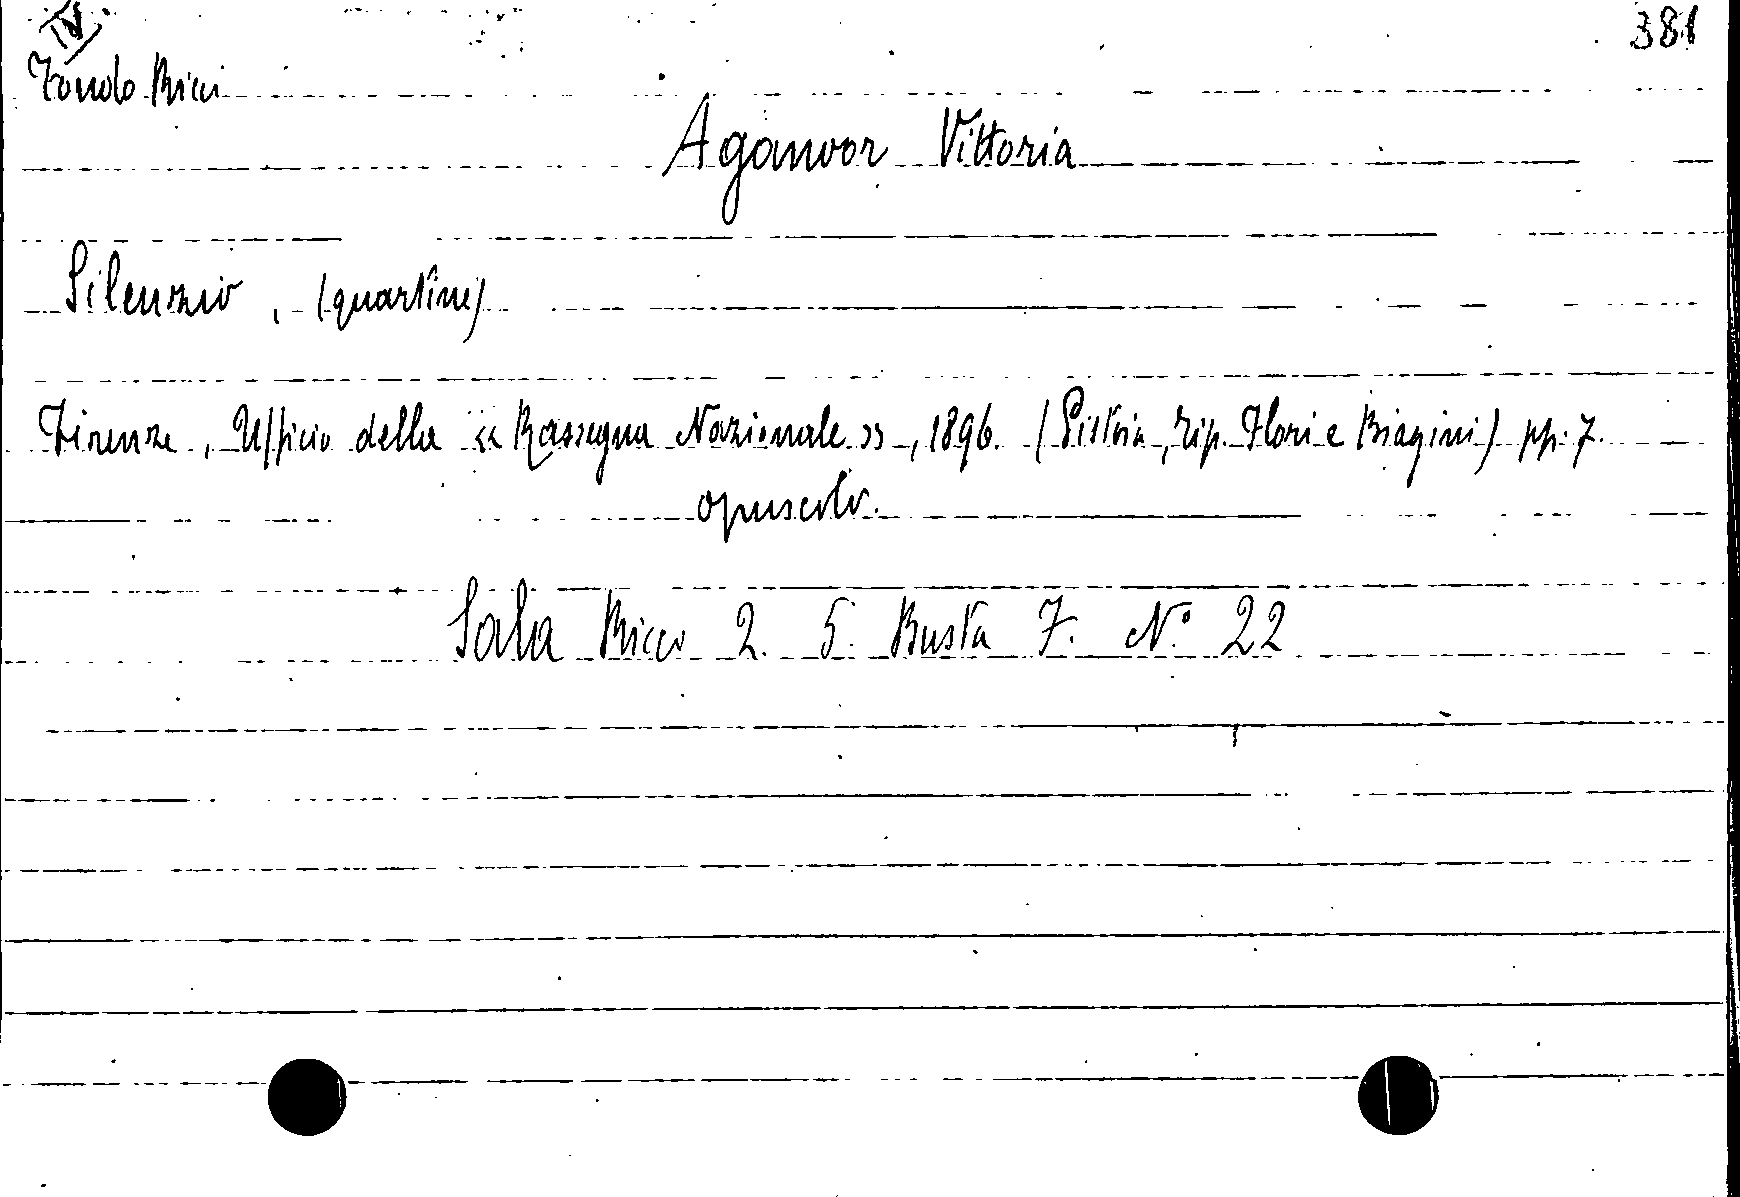 IV
381
Fondo Ricci
Aganoor Vittoria
Silenzio, (quartine)
Firenze, Ufficio della « Rassegna Nazionale », 1896. (Pistoia, Tip. Flori e Biagini) pp. 7.
opuscolo.
Sala Ricci 2. 5. Busta 7. N° 22